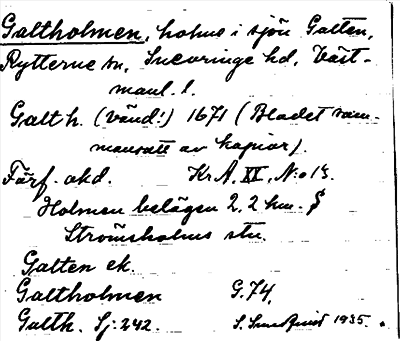 Galtholmen, holme i sjön Galten,
Rytterne sn, Snevringe hd, Väst-
manl. l.
Galth. (vänd!) 1671 (Bladet sam-
mansatt av kopior).
Förf. okd. KrA, XV, N:o 13.
Holmen belägen 2,2 km. S
Strömsholms stn.
Galten ek.
Galtholmen G.74.
Galth. Sj:242. 1935.